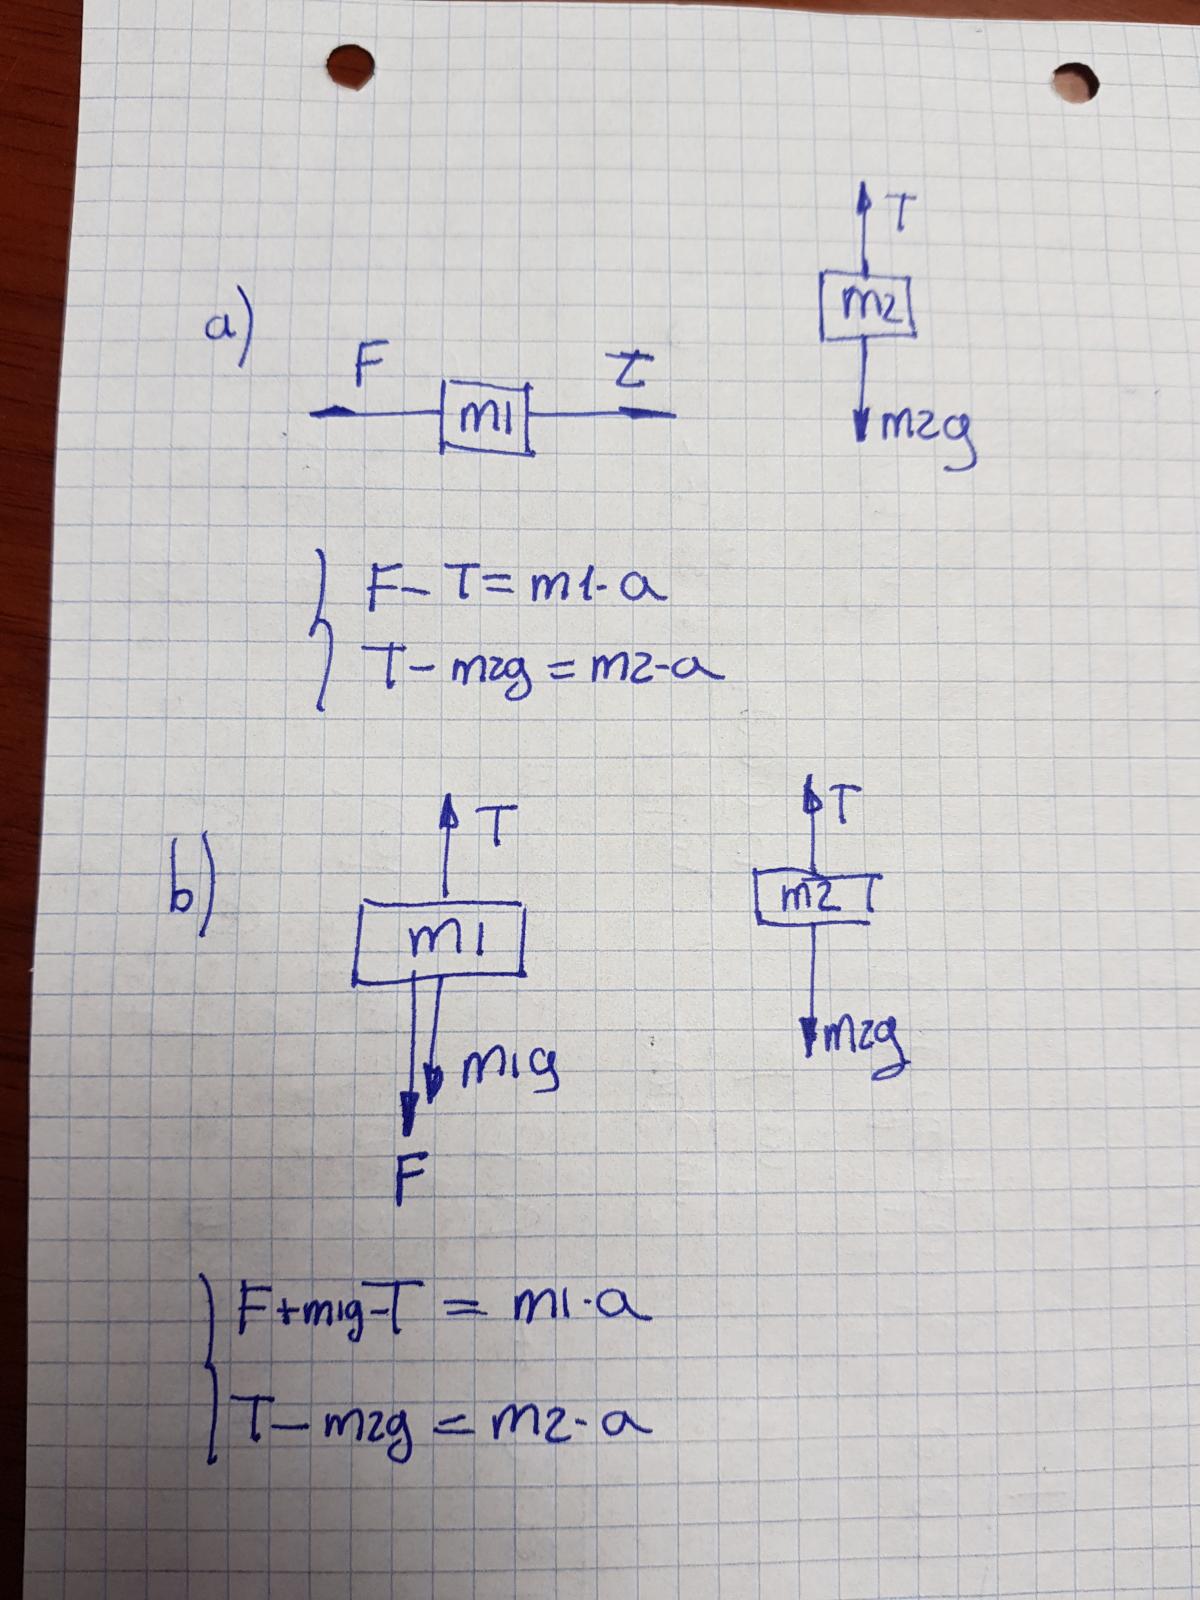 a)
F
m1
T
T
m2
m2g
F - T = m1 · a
T - m2g = m2 · a
b)
T
m1
m1g
F
T
m2
m2g
F + m1g - T = m1 · a
T - m2g = m2 · a